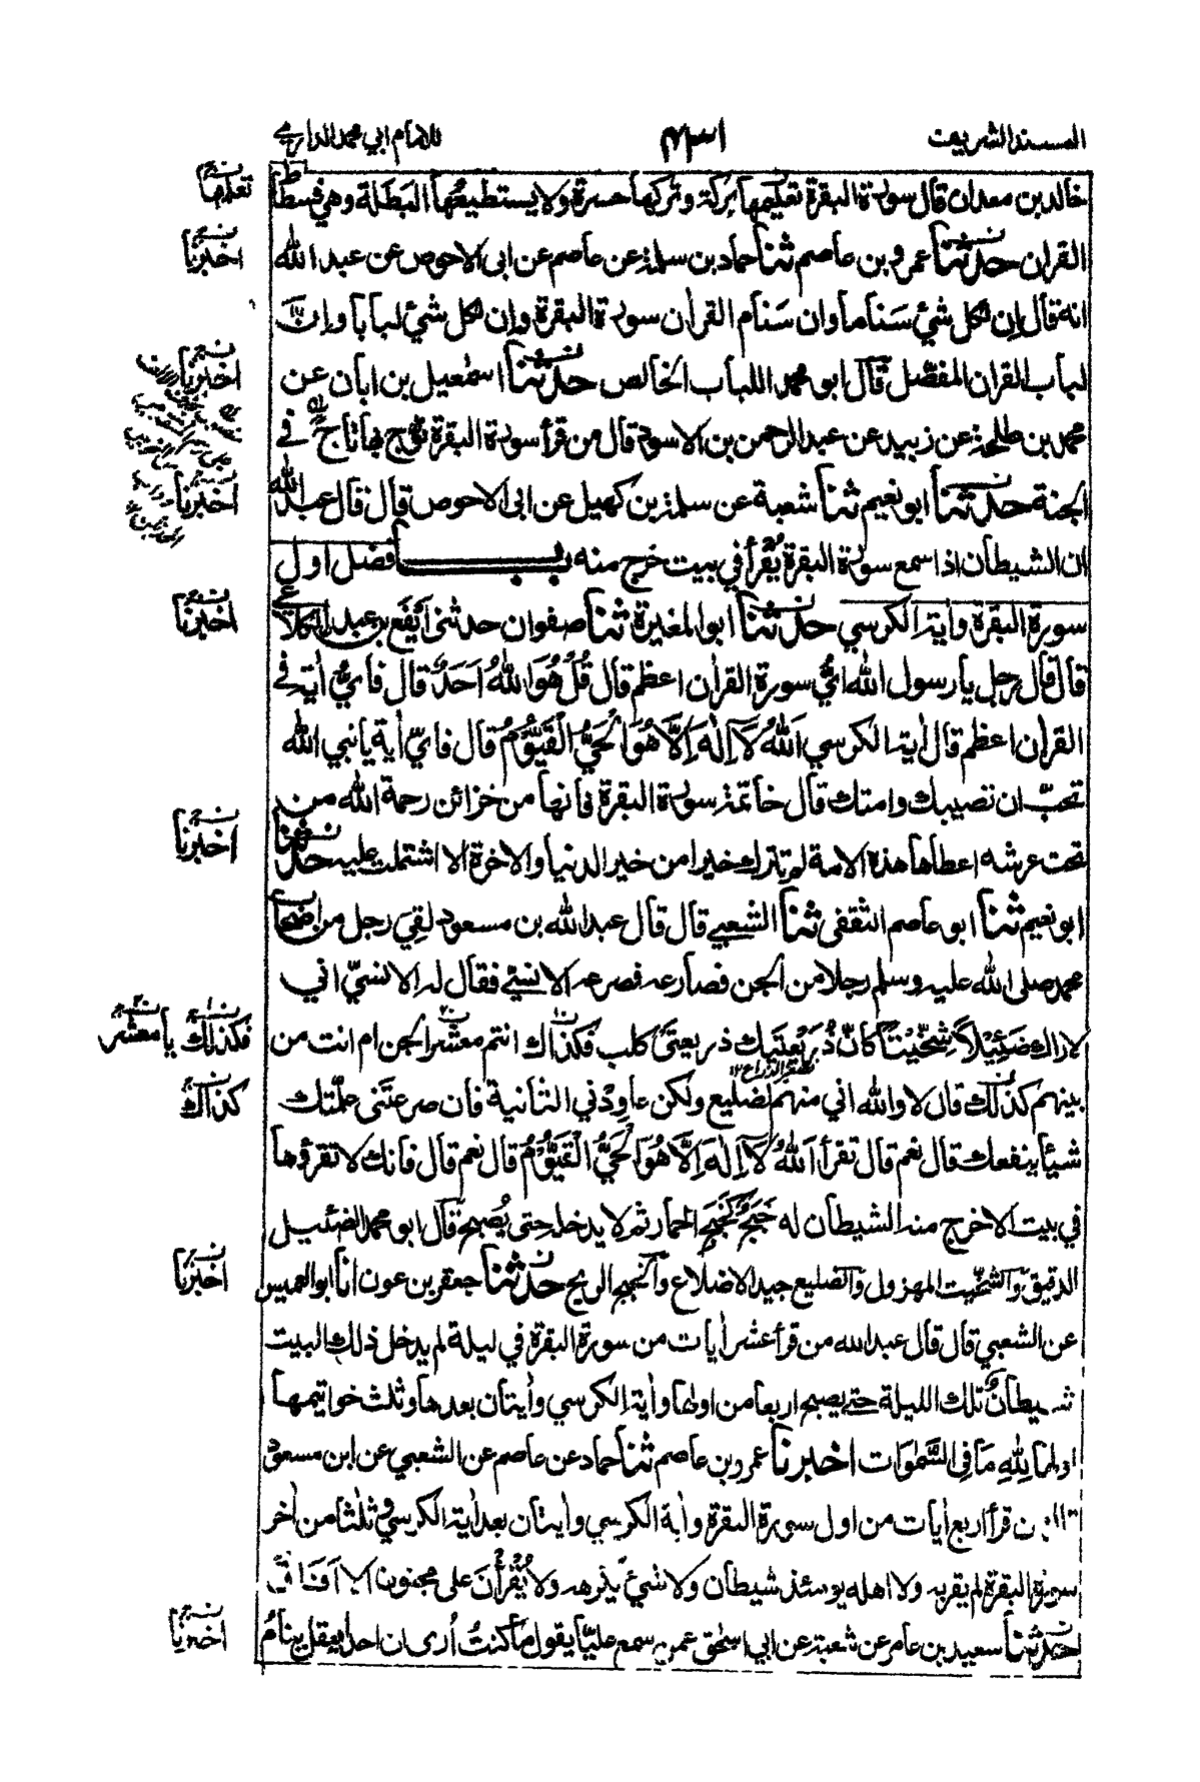 المسند الشريف
٤٣١
للامام ابي محمد الدارمي
خالد بن معدان قال سورة البقرة تعليمها بركة وتركها حسرة ولا يستطيعها البطلة وهي فسطاط
تعلمها
القران حدثنا عمرو بن عاصم ثنا حماد بن سلمة عن عاصم عن ابى الاحوص عن عبد الله
اخبرنا
انه قال ان لكل شئ سَناما وان سَنام القراٰن سورة البقرة وان لكل شئ لبابا وان
لباب القران المفصّل قال ابو محمد اللباب الخالص حدثنا اسمٰعيل بن ابان عن
اخبرنا
محمد بن طلحة عن زبيد عن عبد الرحمن بن الاسود قال من قرأ سورة البقرة توّج بها تاج في
الجنة حدثنا ابو نعيم ثنا شعبة عن سلمة بن كهيل عن ابى الاحوص قال قال عبد الله
اخبرنا
ان الشيطان اذا سمع سورة البقرة يُقرأ في بيت خرج منه باب فضل اول
سورة البقرة واٰية الكرسي حدثنا ابو المغيرة ثنا صفوان حدثنى اَيفَع بن عبد الكلاعي
اخبرنا
قال قال رجل يا رسول الله ايُّ سورة القراٰن اعظم قال قُلْ هُوَ اللهُ اَحَدٌ قال فايُّ اٰية في
القراٰن اعظم قال اٰية الكرسي اَللهُ لَآ اِلٰهَ اِلَّا هُوَ الْحَيُّ الْقَيُّوْمُ قال فايّ اٰية يا نبي الله
تحبّ ان تصيبك وامتك قال خاتمة سورة البقرة فانها من خزائن رحمة الله من
تحت عرشه اعطاها هذه الامة لم تترك خيرا من خير الدنيا والاخرة الا اشتملت عليه حدثنا
اخبرنا
ابو نعيم ثنا ابو عاصم الثقفى ثنا الشعبي قال قال عبد الله بن مسعود لقِيَ رجل من اصحاب
محمد صلى الله عليه وسلم رجلا من الجن فصارعه فصرعه الانسي فقال له الانسيّ اني
لاراك ضَئِيْلًا شِخِّيْتًا كَاَنَّ ذُرَيْعَتَيك ذريعتَىْ كلب فكذاك انتم معشر الجن ام انت من
فكذلك يا معشر
بينهم كذلك قال لا والله اني منهم لضليع ولكن عاوِدْني الثانية فان صرعتَنى علّمتك
كذاك
شيأ ينفعك قال نعم قال تقرأ اَللهُ لَآ اِلٰهَ اِلَّا هُوَ الْحَيُّ الْقَيُّوْمُ قال نعم قال فانك لا تقرؤها
في بيت الا خرج منه الشيطان له خَبَجٌ كَخَبَجِ الحمار ثم لا يدخله حتى يُصبح قال ابو محمد الضئيل
الدقيق والشخيت المهزول والضليع جيد الاضلاع والخبج الريح حدثنا جعفر بن عون انا ابو العميس
اخبرنا
عن الشعبي قال قال عبد الله من قرأ عشر اٰيات من سورة البقرة في ليلة لم يدخل ذلك البيت
شيطان تلك الليلة حتى يصبح اربعا من اولها واٰية الكرسي واٰيتان بعدها وثلث خواتيمها
اولها لِلّٰهِ مَا فِى السَّمٰوَات اخبرنا عمرو بن عاصم ثنا حماد عن عاصم عن الشعبي عن ابن مسعود
قرأ اربع اٰيات من اول سورة البقرة واٰية الكرسي واٰيتان بعد اٰية الكرسي وثلثا من اٰخر
سورة البقرة لم يقربه ولا اهله يومئذ شيطان ولا شئ يكرهه ولا يُقْرَأنَ على مجنون الا اَفَاقَ
حدثنا سعيد بن عامر عن شعبة عن ابي اسحٰق عمن سمع عليّا يقول ما كنتُ اُرى ان احدا يعقل ينامُ
اخبرنا